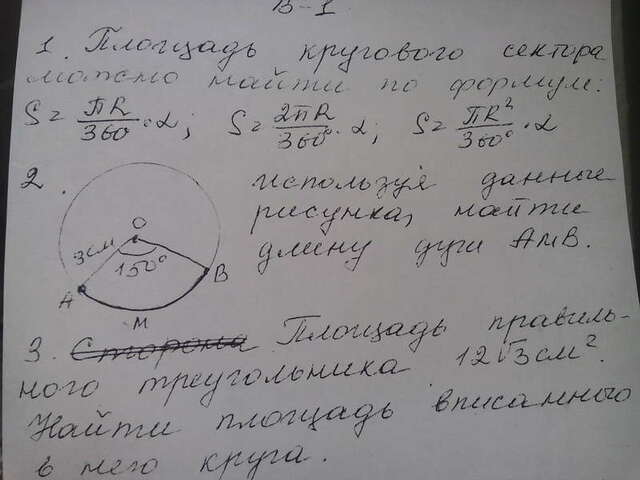 В-1
1. Площадь кругового сектора
можно найти по формуле:
S = πR/360° · α; S = 2πR/360° · α; S = πR²/360° · α
2.
используя данные
рисунка, найти
длину дуги АмВ.
О
3см
150°
А
В
М
3. Сторона Площадь правиль-
ного треугольника 12√3см².
Найти площадь вписанного
в него круга.